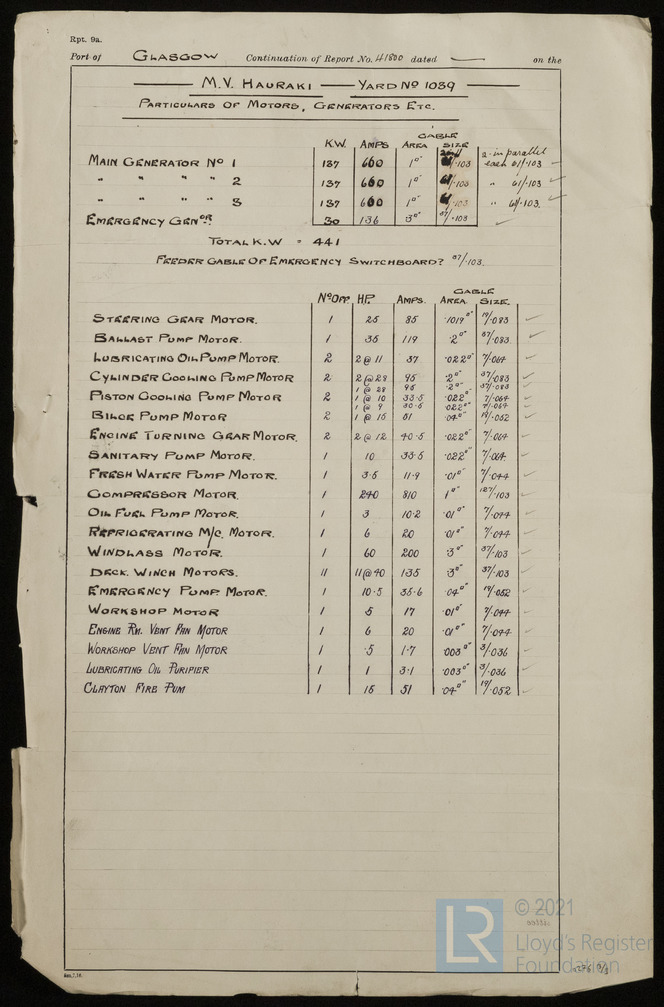 Rpt. 9a.
Port of GLASGOW Continuation of Report No. 41800 dated — on the
M.V. HAURAKI — YARD No 1039
PARTICULARS OF MOTORS, GENERATORS ETC.
CABLE
K.W. AMPS AREA SIZE
MAIN GENERATOR No 1 137 660 1▫" /.103 2 in parallel each 61/.103
" " " " 2 137 660 1▫" 61/.103 " 61/.103
" " " " 3 137 660 1▫" 61/.103 " 61/.103.
EMERGENCY GENOR. 30 136 .3▫" 37/.103
TOTAL K.W = 441
FEEDER CABLE OF EMERGENCY SWITCHBOARD? 37/.103.
CABLE
No OFF. HP. AMPS. AREA SIZE.
STEERING GEAR MOTOR. 1 25 85 .1019▫" 19/.083
BALLAST PUMP MOTOR. 1 35 119 .2▫" 37/.083
LUBRICATING OIL PUMP MOTOR. 2 2 @ 11 37 .022▫" 7/.064
CYLINDER COOLING PUMP MOTOR 2 2 @ 28 95 .2▫" 37/.083
1 @ 28 95 .2▫" 37/.083
PISTON COOLING PUMP MOTOR 2 1 @ 10 33.5 .022▫" 7/.064
1 @ 9 30.5 .022▫" 7/.064
BILGE PUMP MOTOR 2 1 @ 15 51 .04▫" 19/.052
ENGINE TURNING GEAR MOTOR. 2 2 @ 12 40.5 .022▫" 7/.064
SANITARY PUMP MOTOR. 1 10 33.5 .022▫" 7/.064
FRESH WATER PUMP MOTOR. 1 3.5 11.9 .01▫" 7/.044
COMPRESSOR MOTOR. 1 240 810 1▫" 127/.103
OIL FUEL PUMP MOTOR. 1 3 10.2 .01▫" 7/.044
REFRIGERATING M/C. MOTOR. 1 6 20 .01▫" 7/.044
WINDLASS MOTOR. 1 60 200 .3▫" 37/.103
DECK. WINCH MOTORS. 11 11 @ 40 135 .3▫" 37/.103
EMERGENCY PUMP MOTOR. 1 10.5 35.6 .04▫" 19/.052
WORKSHOP MOTOR 1 5 17 .01▫" 7/.044
ENGINE RM. VENT FAN MOTOR 1 6 20 .01▫" 7/.044
WORKSHOP VENT FAN MOTOR 1 .5 1.7 .003▫" 3/.036
LUBRICATING OIL PURIFIER 1 1 3.1 .003▫" 3/.036
CLAYTON FIRE PUM 1 15 51 .04▫" 19/.052
LR
© 2021
Lloyd's Register
Foundation